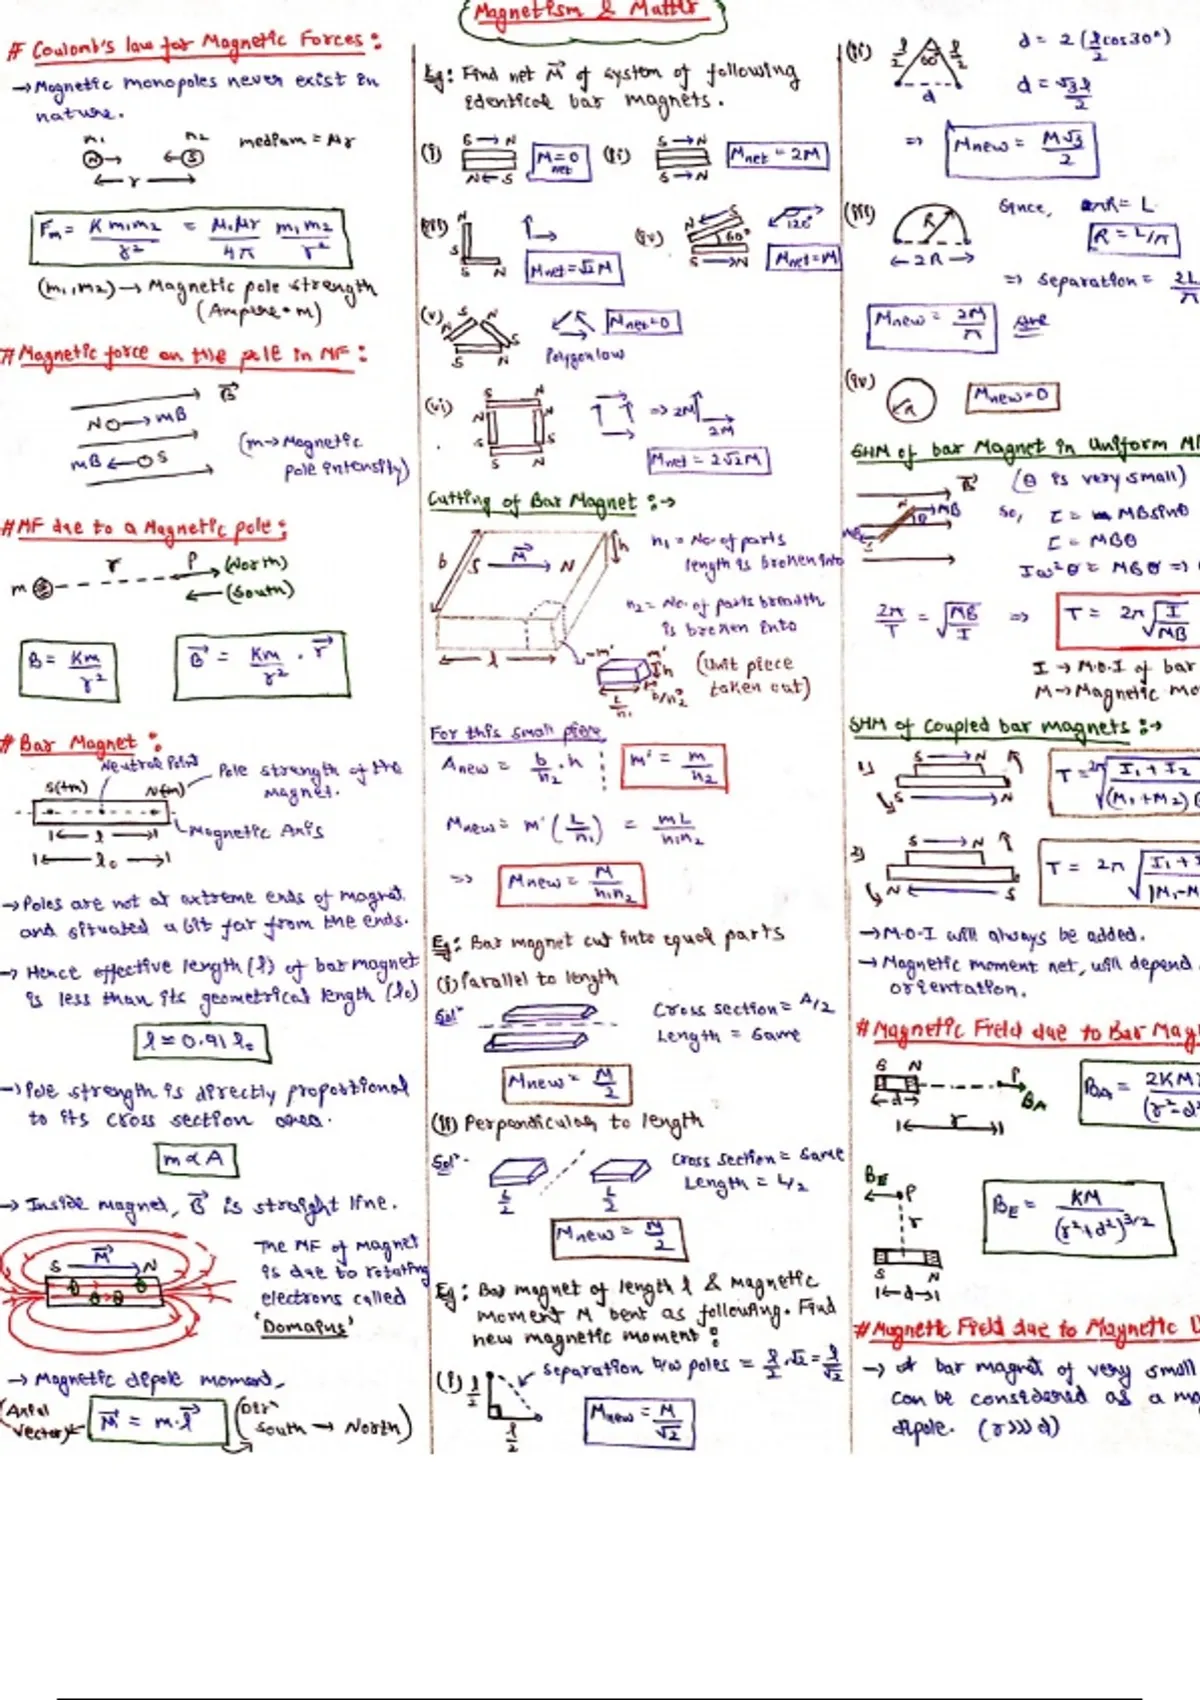 Magnetism & Matter
# Coulomb's law for Magnetic Forces:
→ Magnetic monopoles never exist in
nature.
m1 m2 medium = μr
N → ← S
← r →
Fm = K m1m2 / r² = μ.μr / 4π m1 m2 / r²
(m1,m2) → Magnetic pole strength
(Ampere • m)
# Magnetic force on the pole in MF:
B
N → mB
mB ← S
(m → Magnetic
pole intensity)
# MF due to a Magnetic pole:
m r P → (North)
← (South)
B = Km / r² B = Km / r² . r
# Bar Magnet:
Neutral Point
S(+m) N(m) Pole strength of the
magnet.
← l → Magnetic Axis
← l0 →
→ Poles are not at extreme ends of magnet
and situated a bit far from the ends.
→ Hence effective length (l) of bar magnet
is less than its geometrical length (l0)
l = 0.91 l0
→ Pole strength is directly proportional
to its cross section area.
m ∝ A
→ Inside magnet, B is straight line.
S M N
The MF of magnet
is due to rotating
electrons called
'Domains'
→ Magnetic dipole moment,
(Axial
vector) ← M = m.l (Dirn
South → North)
Eg: Find net M of system of following
identical bar magnets.
(i) S → N
N ← S
M = 0
net
(ii) S → N
S → N
Mnet = 2M
(iii) N
S
S N
Mnet = √2M
(iv) N S
60°
S → N
120°
Mnet = M
(v) S N
N S
S N
Mnet = 0
Polygon law
(vi) S N
N N
S S
S N
⇒ 2M
2M
Mnet = 2√2M
Cutting of Bar Magnet :→
b S M N h
n1 = No. of parts
length is broken into
n2 = No. of parts breadth
is broken into
← l →
-m' m' h
L/n1 b/n2
(Unit piece
taken out)
For this small piece
Anew = b/n2 . h m' = m/n2
Mnew = m' (L/n1) = mL/n1n2
⇒ Mnew = M/n1n2
Eg: Bar magnet cut into equal parts
(i) Parallel to length
Solⁿ Cross section = A/2
Length = Same
Mnew = M/2
(ii) Perpendicular to length
Solⁿ- Cross section = Same
Length = L/2
L/2 L/2
Mnew = M/2
Eg: Bar magnet of length l & Magnetic
moment M bent as following. Find
new magnetic moment :
(i) l/2 Separation b/w poles = l/2 . √2 = l/√2
l/2
Mnew = M/√2
(ii) l/2 60° l/2
d
d = 2 (l/2 cos30°)
d = √3l/2
⇒ Mnew = M√3/2
(iii) R
← 2R →
Since, πR = L
R = L/π
⇒ Separation = 2L/π
Mnew = 2M/π
(iv) Mnew = 0
SHM of bar Magnet in Uniform M
B (θ is very small)
MB θ
MB
So, τ = MBsinθ
τ = MBθ
Iω²θ = MBθ ⇒
2π/T = √MB/I ⇒ T = 2π√I/MB
I → M.O.I of bar
M → Magnetic mo
SHM of Coupled bar magnets :→
1) S → N
S → N
T = 2π √I1 + I2 / (M1 + M2)
2) S → N
N ← S
T = 2π √I1 + I / |M1 - M
→ M.O.I will always be added.
→ Magnetic moment net, will depend
orientation.
# Magnetic Field due to Bar Mag
S N P
BA
← d →
← r →
BA = 2KM / (r² - d²
BE P
r
S N
← d →
BE = KM / (r² + d²)^3/2
# Magnetic Field due to Magnetic D
→ A bar magnet of very small
can be considered as a ma
dipole. (r>>>d)